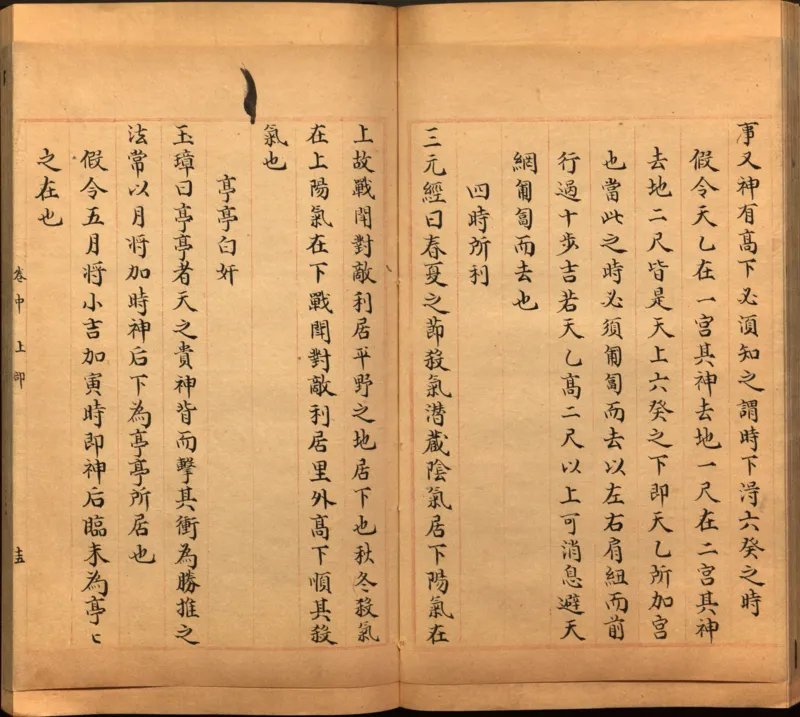 事又神有高下必須知之謂時下淂六癸之時
假令天乙在一宫其神去地一尺在二宫其神
去地二尺皆是天上六癸之下即天乙所加宫
也當此之時必須匍匐而去以左右肩紐而前
行過十步吉若天乙高二尺以上可消息避天
網匍匐而去也
四時所利
三元經曰春夏之節殺氣潜藏陰氣居下陽氣在
上故戰鬪對敵利居平野之地居下也秋冬殺氣
在上陽氣在下戰鬪對敵利居里外高下順其殺
氣也
亭亭白奸
玉璋曰亭亭者天之貴神背而擊其衝為勝推之
法常以月將加時神后下為亭亭所居也
假令五月將小吉加寅時即神后臨未為亭〻
之在也
卷中 上 即
十五